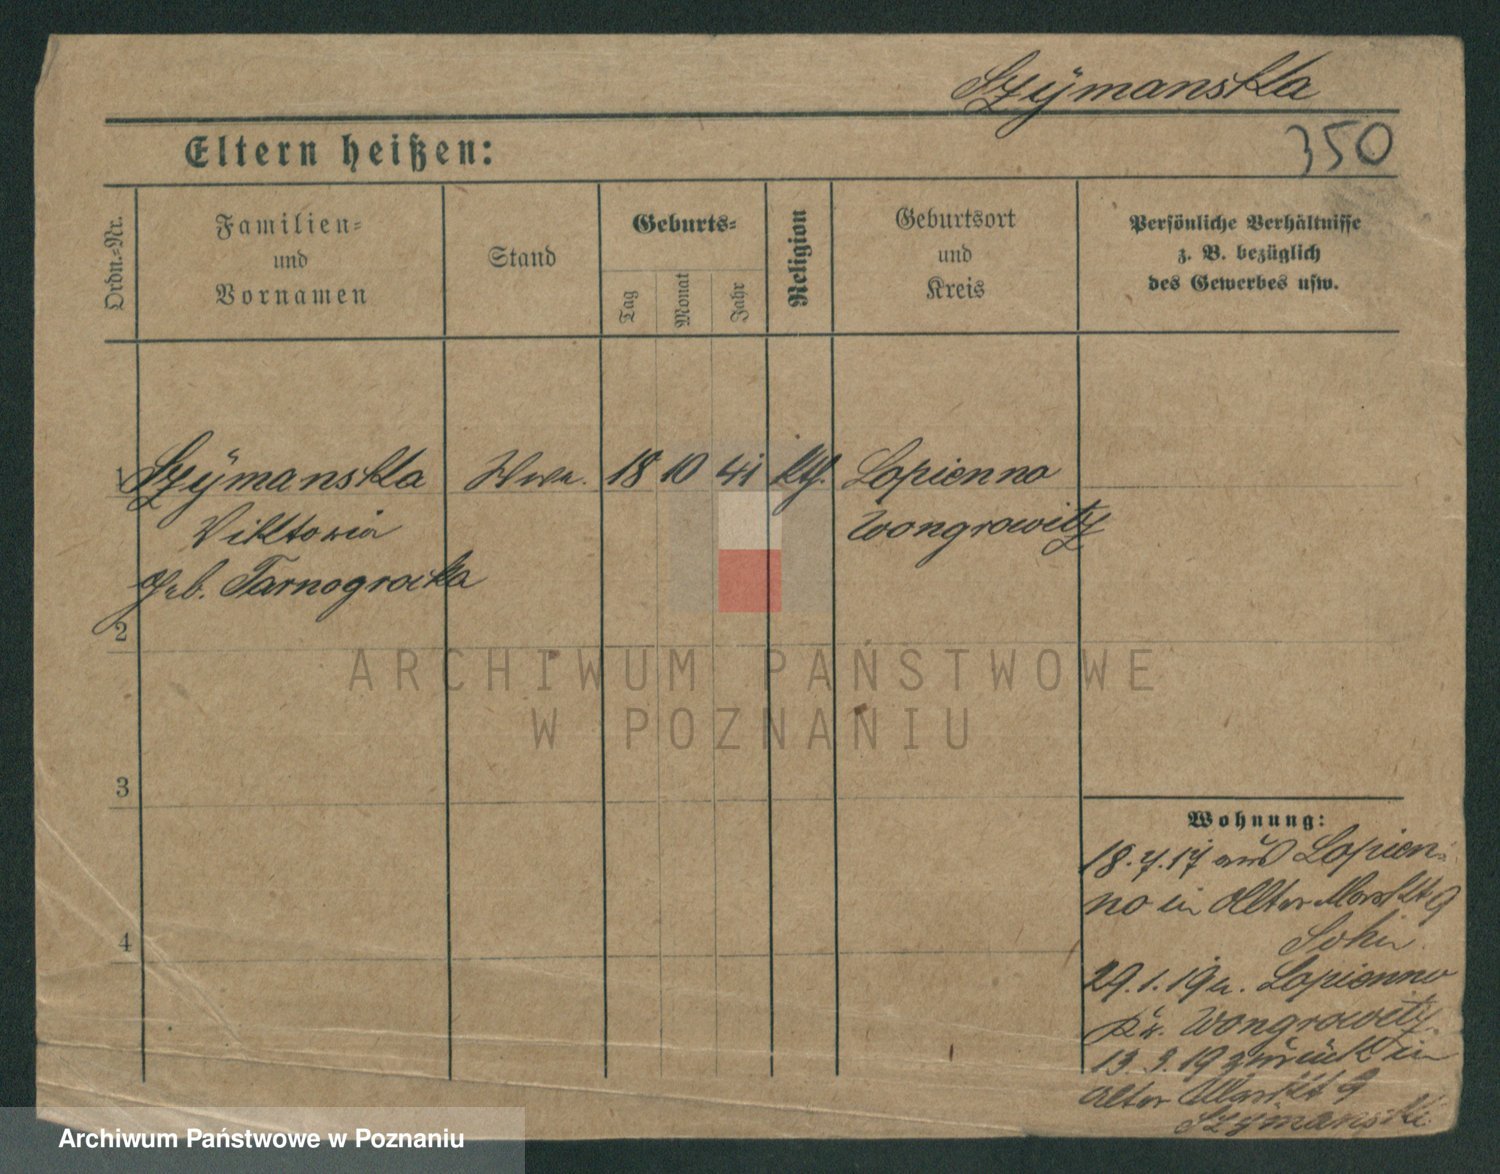 Szÿmanska
350
Eltern heißen:
Ordn.=Nr.
Familien=
und
Vornamen
Stand
Geburts=
Tag
Monat
Jahr
Religion
Geburtsort
und
Kreis
Persönliche Verhältnisse
z. B. bezüglich
des Gewerbes usw.
1 Szÿmanska Wwe. 18 10 41 kth. Lopienno
Viktoria Wongrowitz
geb. Tarnogrocka
2
3
4
Wohnung:
18.7.17 aus Lopien=
no in Alter Markt 9
Sohn.
29.1.19 n. Lopienno
Kr. Wongrowitz.
13.3.19 zurück in
Alter Markt 9
Szÿmanski
ARCHIWUM PAŃSTWOWE
W POZNANIU
Archiwum Państwowe w Poznaniu